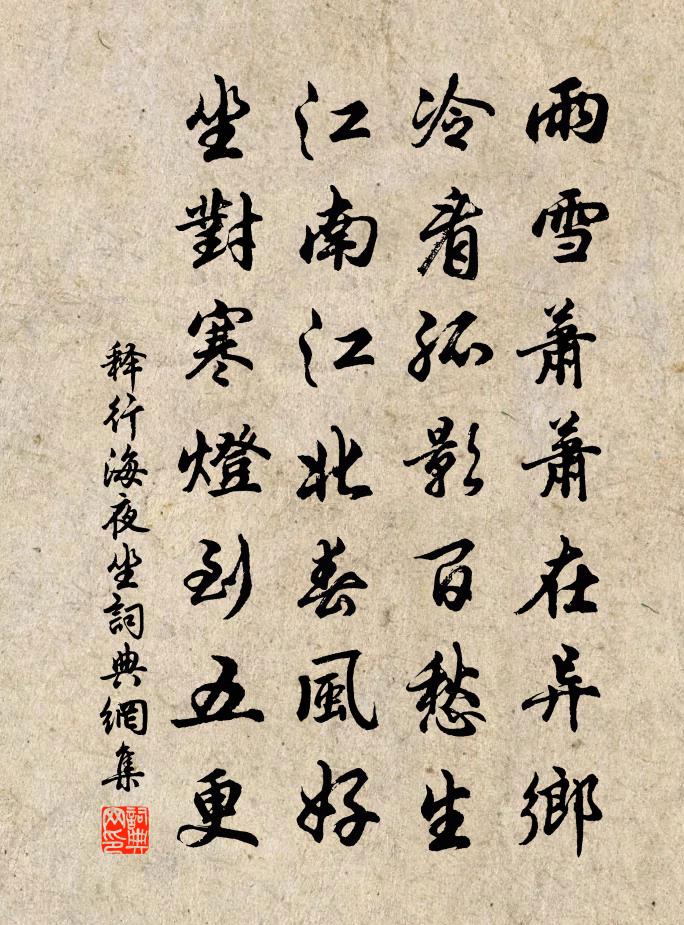 雨雪蕭蕭在异鄉
冷看孤影百愁生
江南江北春風好
坐對寒燈到五更
释行海夜坐詞典網集
詞典網印